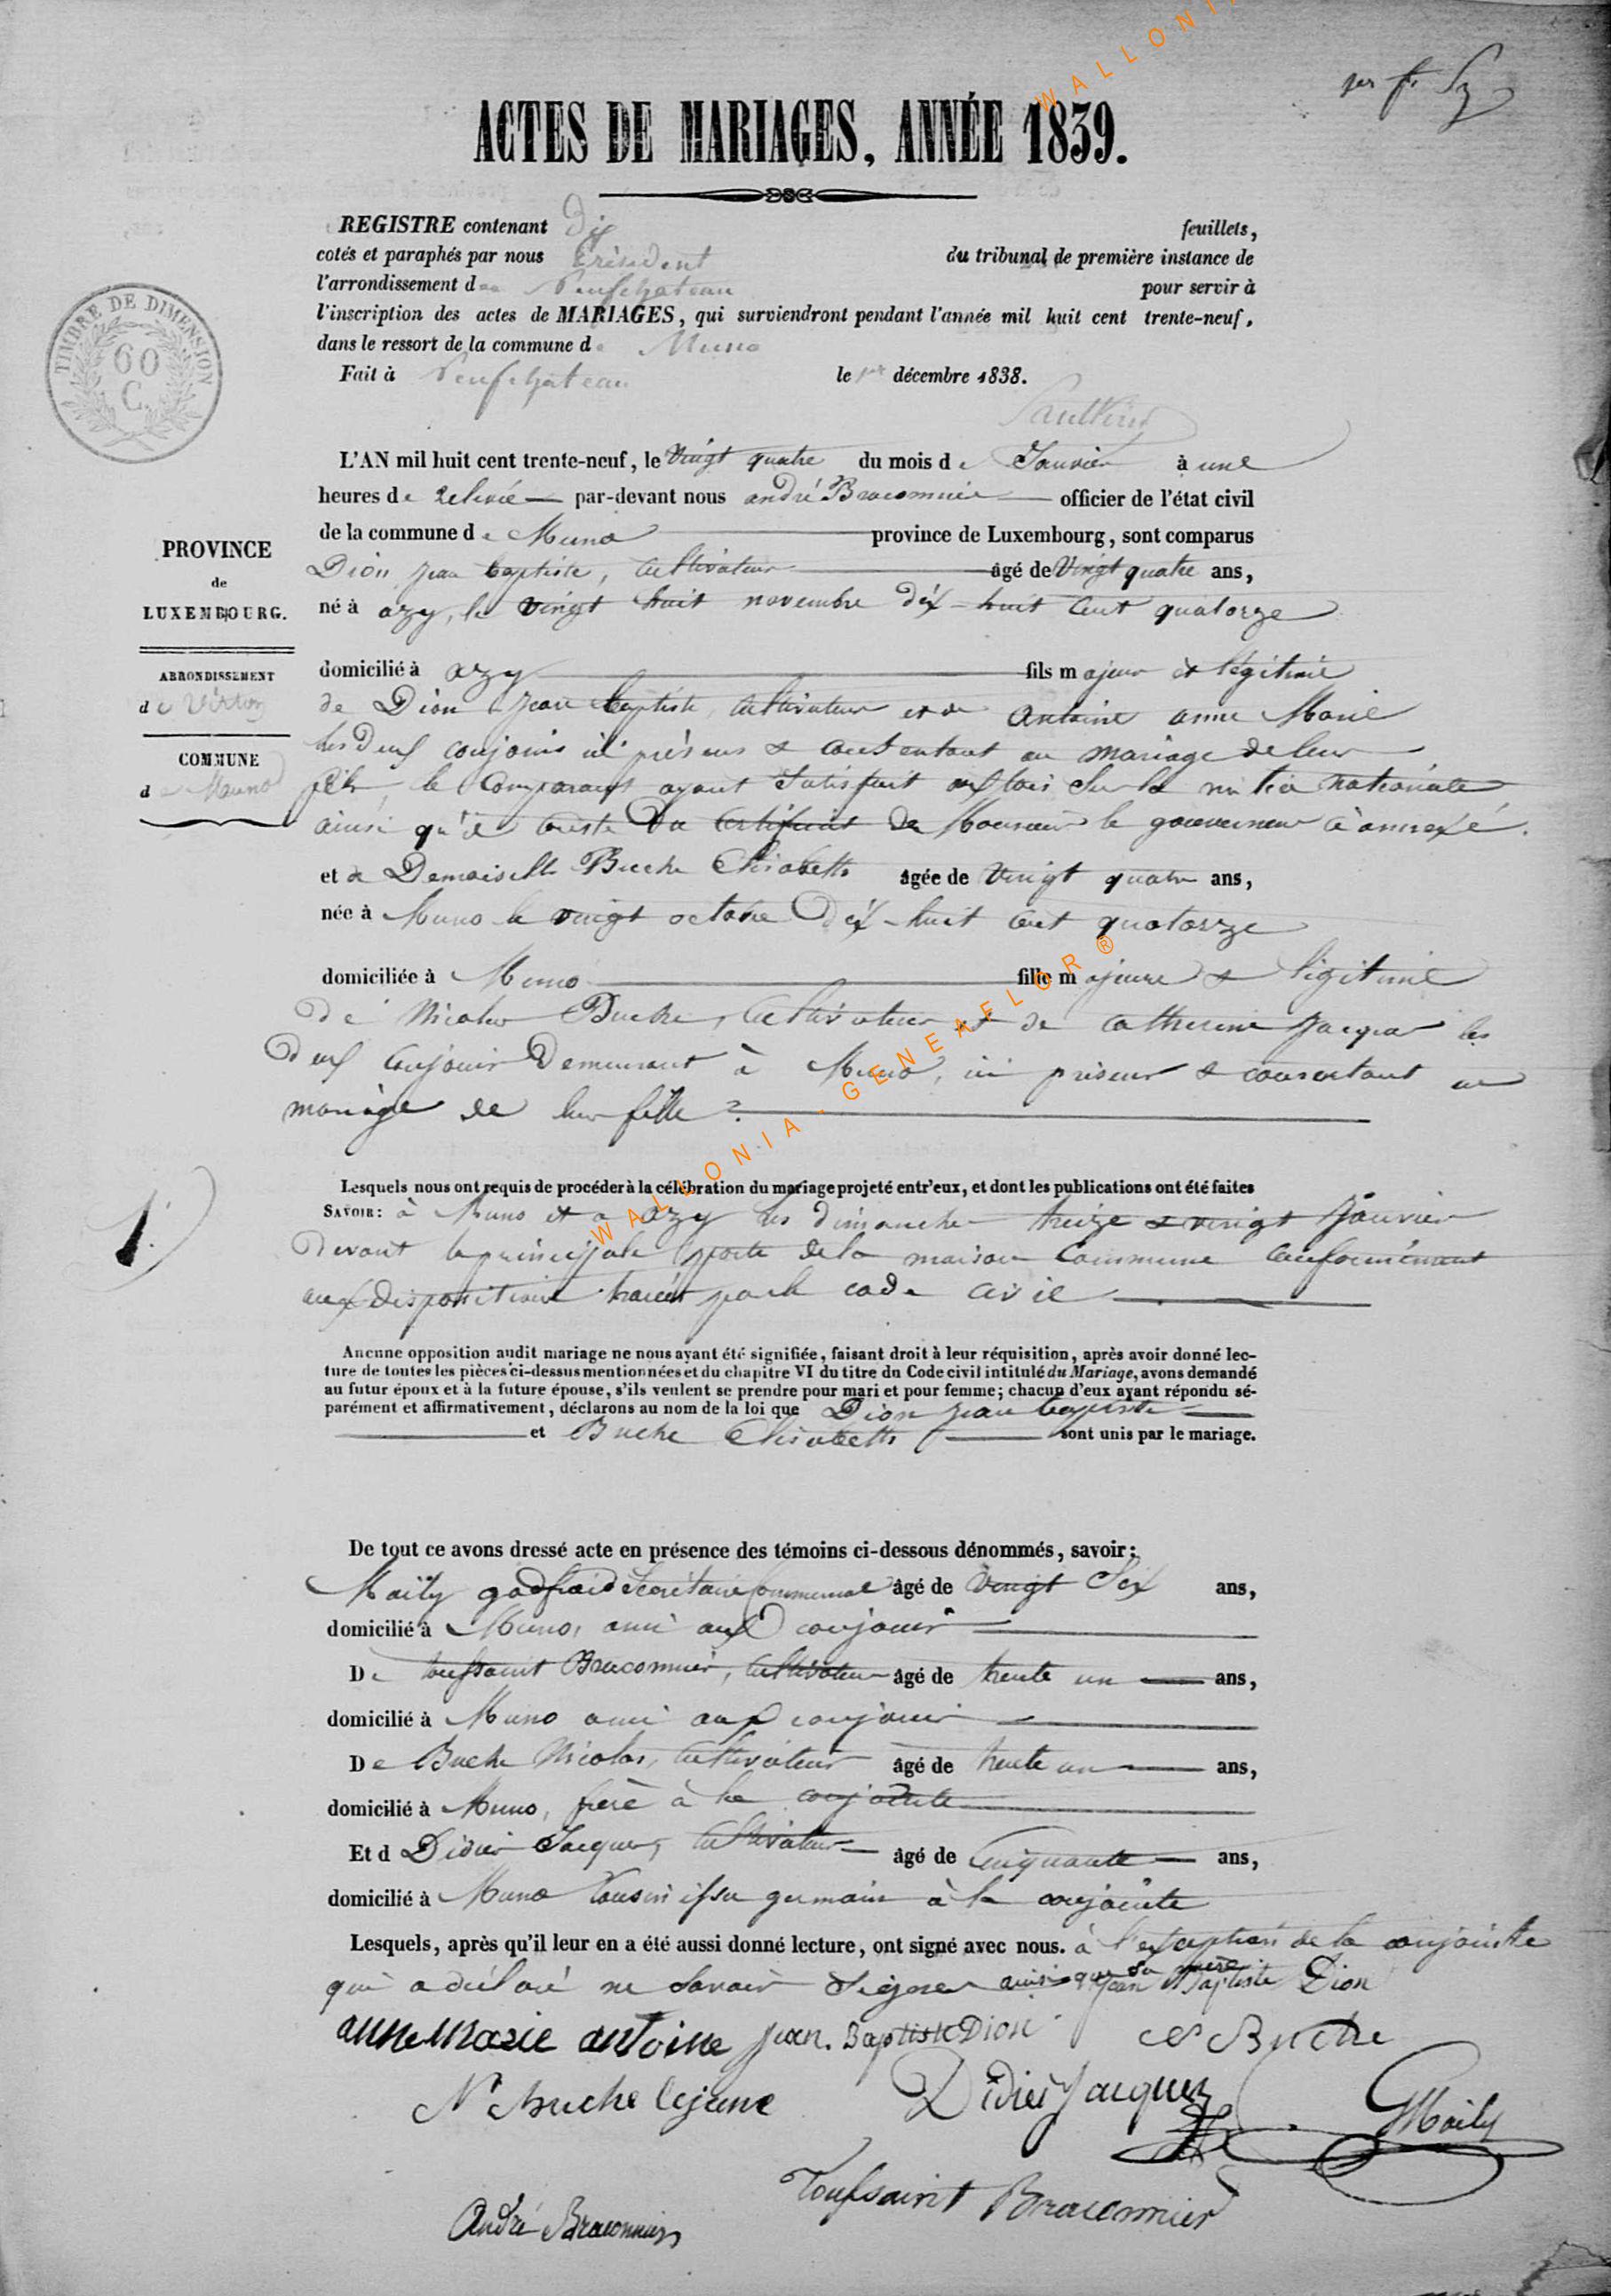 WALLONI
ACTES DE MARIAGES, ANNÉE 1839.
REGISTRE contenant Dix feuillets,
cotés et paraphés par nous Président du tribunal de première instance de
l'arrondissement de Neufchateau pour servir à
l'inscription des actes de MARIAGES, qui surviendront pendant l'année mil huit cent trente-neuf,
dans le ressort de la commune de Muno
Fait à Neufchâteau le 1er décembre 1838.
TIMBRE DE DIMENSION
60
C.
L'AN mil huit cent trente-neuf, le vingt quatre du mois de Janvier à une
heures de relevée par-devant nous andré Braconnier officier de l'état civil
de la commune de Muno province de Luxembourg, sont comparus
Dion jean baptiste, cultivateur âgé de vingt quatre ans,
né à azy, le vingt huit novembre dix-huit cent quatorze
domicilié à azy fils majeur et légitime
de Dion jean baptiste, cultivateur et de antoine anne Marie
les deux conjoints ici présens & consentant au mariage de leur
fils le comparant ayant satisfait aux lois sur la milice nationale
ainsi qu'il conste du certificat de Monsieur le gouverneur ci annexé.
PROVINCE
de
LUXEMBOURG.
ARRONDISSEMENT
de Virton
COMMUNE
de Muno
et de Demoiselle Buche Elisabeth âgée de vingt quatre ans,
née à Muno le vingt octobre dix-huit cent quatorze
domiciliée à Muno fille majeure & légitime
de Nicolas Buche, cultivateur et de catherine jacques les
deux conjoints demeurant à Muno, ici présens & consentant au
mariage de leur fille.
WALLONIA-GENEAFLOR®
1.
Lesquels nous ont requis de procéder à la célébration du mariage projeté entr'eux, et dont les publications ont été faites
SAVOIR: à Muno et a azy les dimanches treize & vingt janvier
devant la principale porte de la maison commune conformément
aux dispositions tracées par le code civil
Aucune opposition audit mariage ne nous ayant été signifiée, faisant droit à leur réquisition, après avoir donné lec-
ture de toutes les pièces ci-dessus mentionnées et du chapitre VI du titre du Code civil intitulé du Mariage, avons demandé
au futur époux et à la future épouse, s'ils veulent se prendre pour mari et pour femme; chacun d'eux ayant répondu sé-
parément et affirmativement, déclarons au nom de la loi que Dion jean baptiste
et Buche Elisabeth sont unis par le mariage.
De tout ce avons dressé acte en présence des témoins ci-dessous dénommés, savoir:
Maily godfroid Secrétaire Communal âgé de vingt Six ans,
domicilié à Muno, ami aux conjoints
De toussaint Braconnier, cultivateur âgé de trente un ans,
domicilié à Muno ami aux conjoints
De Buche Nicolas, cultivateur âgé de trente un ans,
domicilié à Muno, frère à la conjointe
Et d Didier Jacques, cultivateur âgé de Cinquante ans,
domicilié à Muno Cousin issu germain à la conjointe
Lesquels, après qu'il leur en a été aussi donné lecture, ont signé avec nous. à l'exception de la conjointe
qui a déclaré ne savoir signer ainsi que sa mère jean Baptiste Dion
anne marie antoine jean. Baptiste Dion Ns Buche
Ns buche lejeune Didier Jacques GMaily
Toussaint Braconnier
André Braconnier